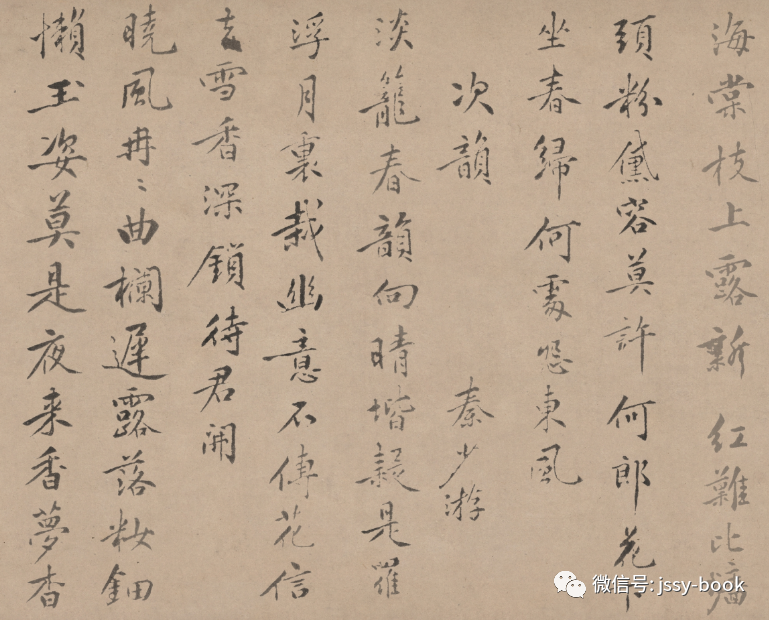 海棠枝上露新紅難比牆
頭粉黛容莫許何郎花下
坐春歸何處怨東風
次韻 秦少游
淡籠春韻向晴堦疑是羅
浮月裏栽幽意不傳花信
去雪香深鎖待君開
曉風冉〻曲欄遲露落妝鈿
懶玉姿莫是夜來香夢杳
微信号: jssy-book